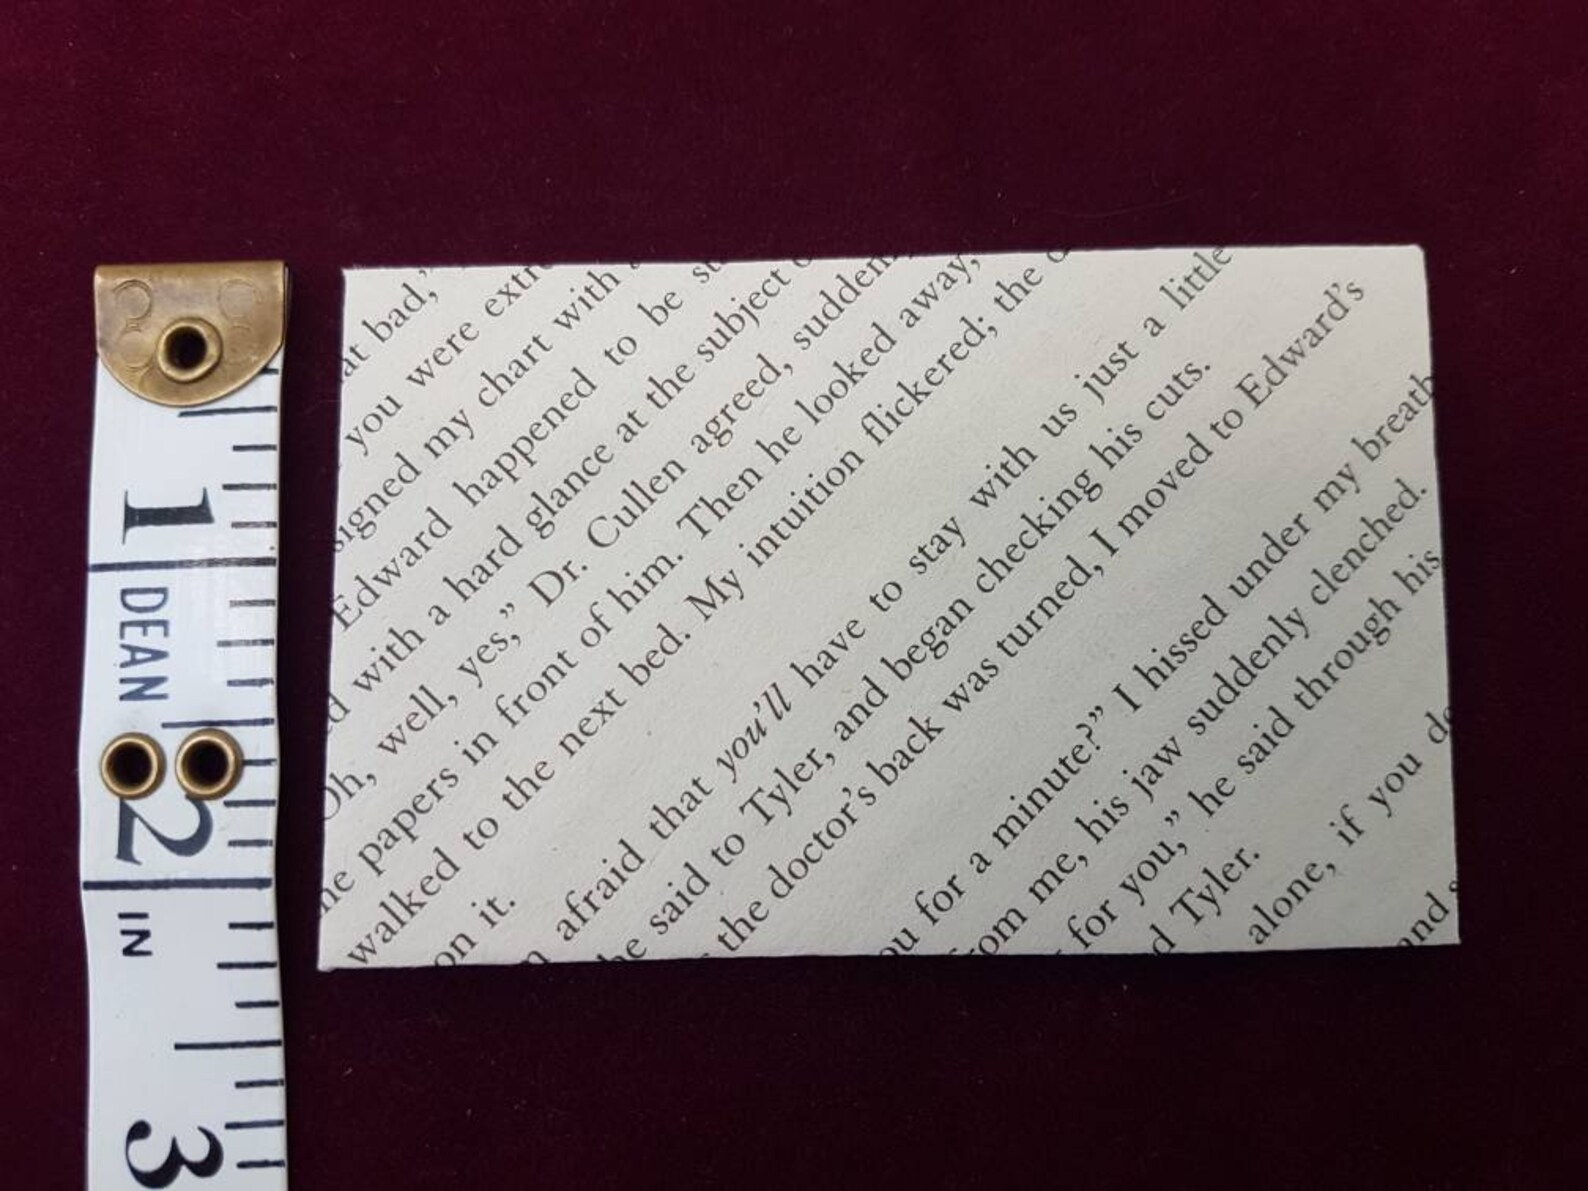 1
DEAN
2
IN
3
at bad,"
you were extr
signed my chart with
Edward happened to be
with a hard glance at the subject
Oh, well, yes," Dr. Cullen agreed, sudden
papers in front of him. Then he looked away,
walked to the next bed. My intuition flickered; the
on it.
afraid that you'll have to stay with us just a little
he said to Tyler, and began checking his cuts.
the doctor's back was turned, I moved to Edward's
ou for a minute?" I hissed under my breath
om me, his jaw suddenly clenched.
for you," he said through his
d Tyler.
alone, if you
and